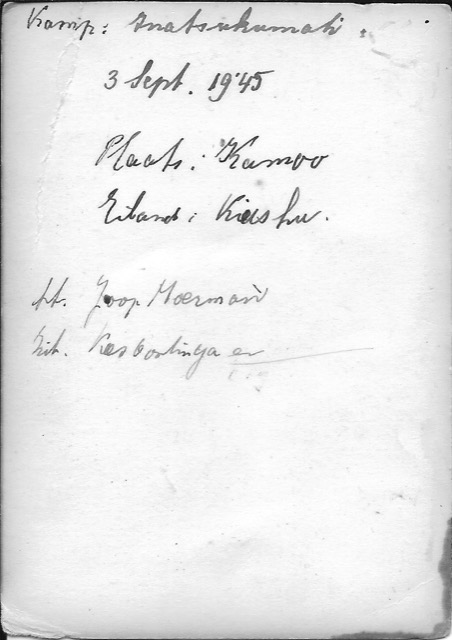 Kamp: Inatsukumati.
3 Sept. 1945
Plaats: Kamoo
Eiland: Kiushu.
St. Joop Moerman
Zit. Kas Bostinga en